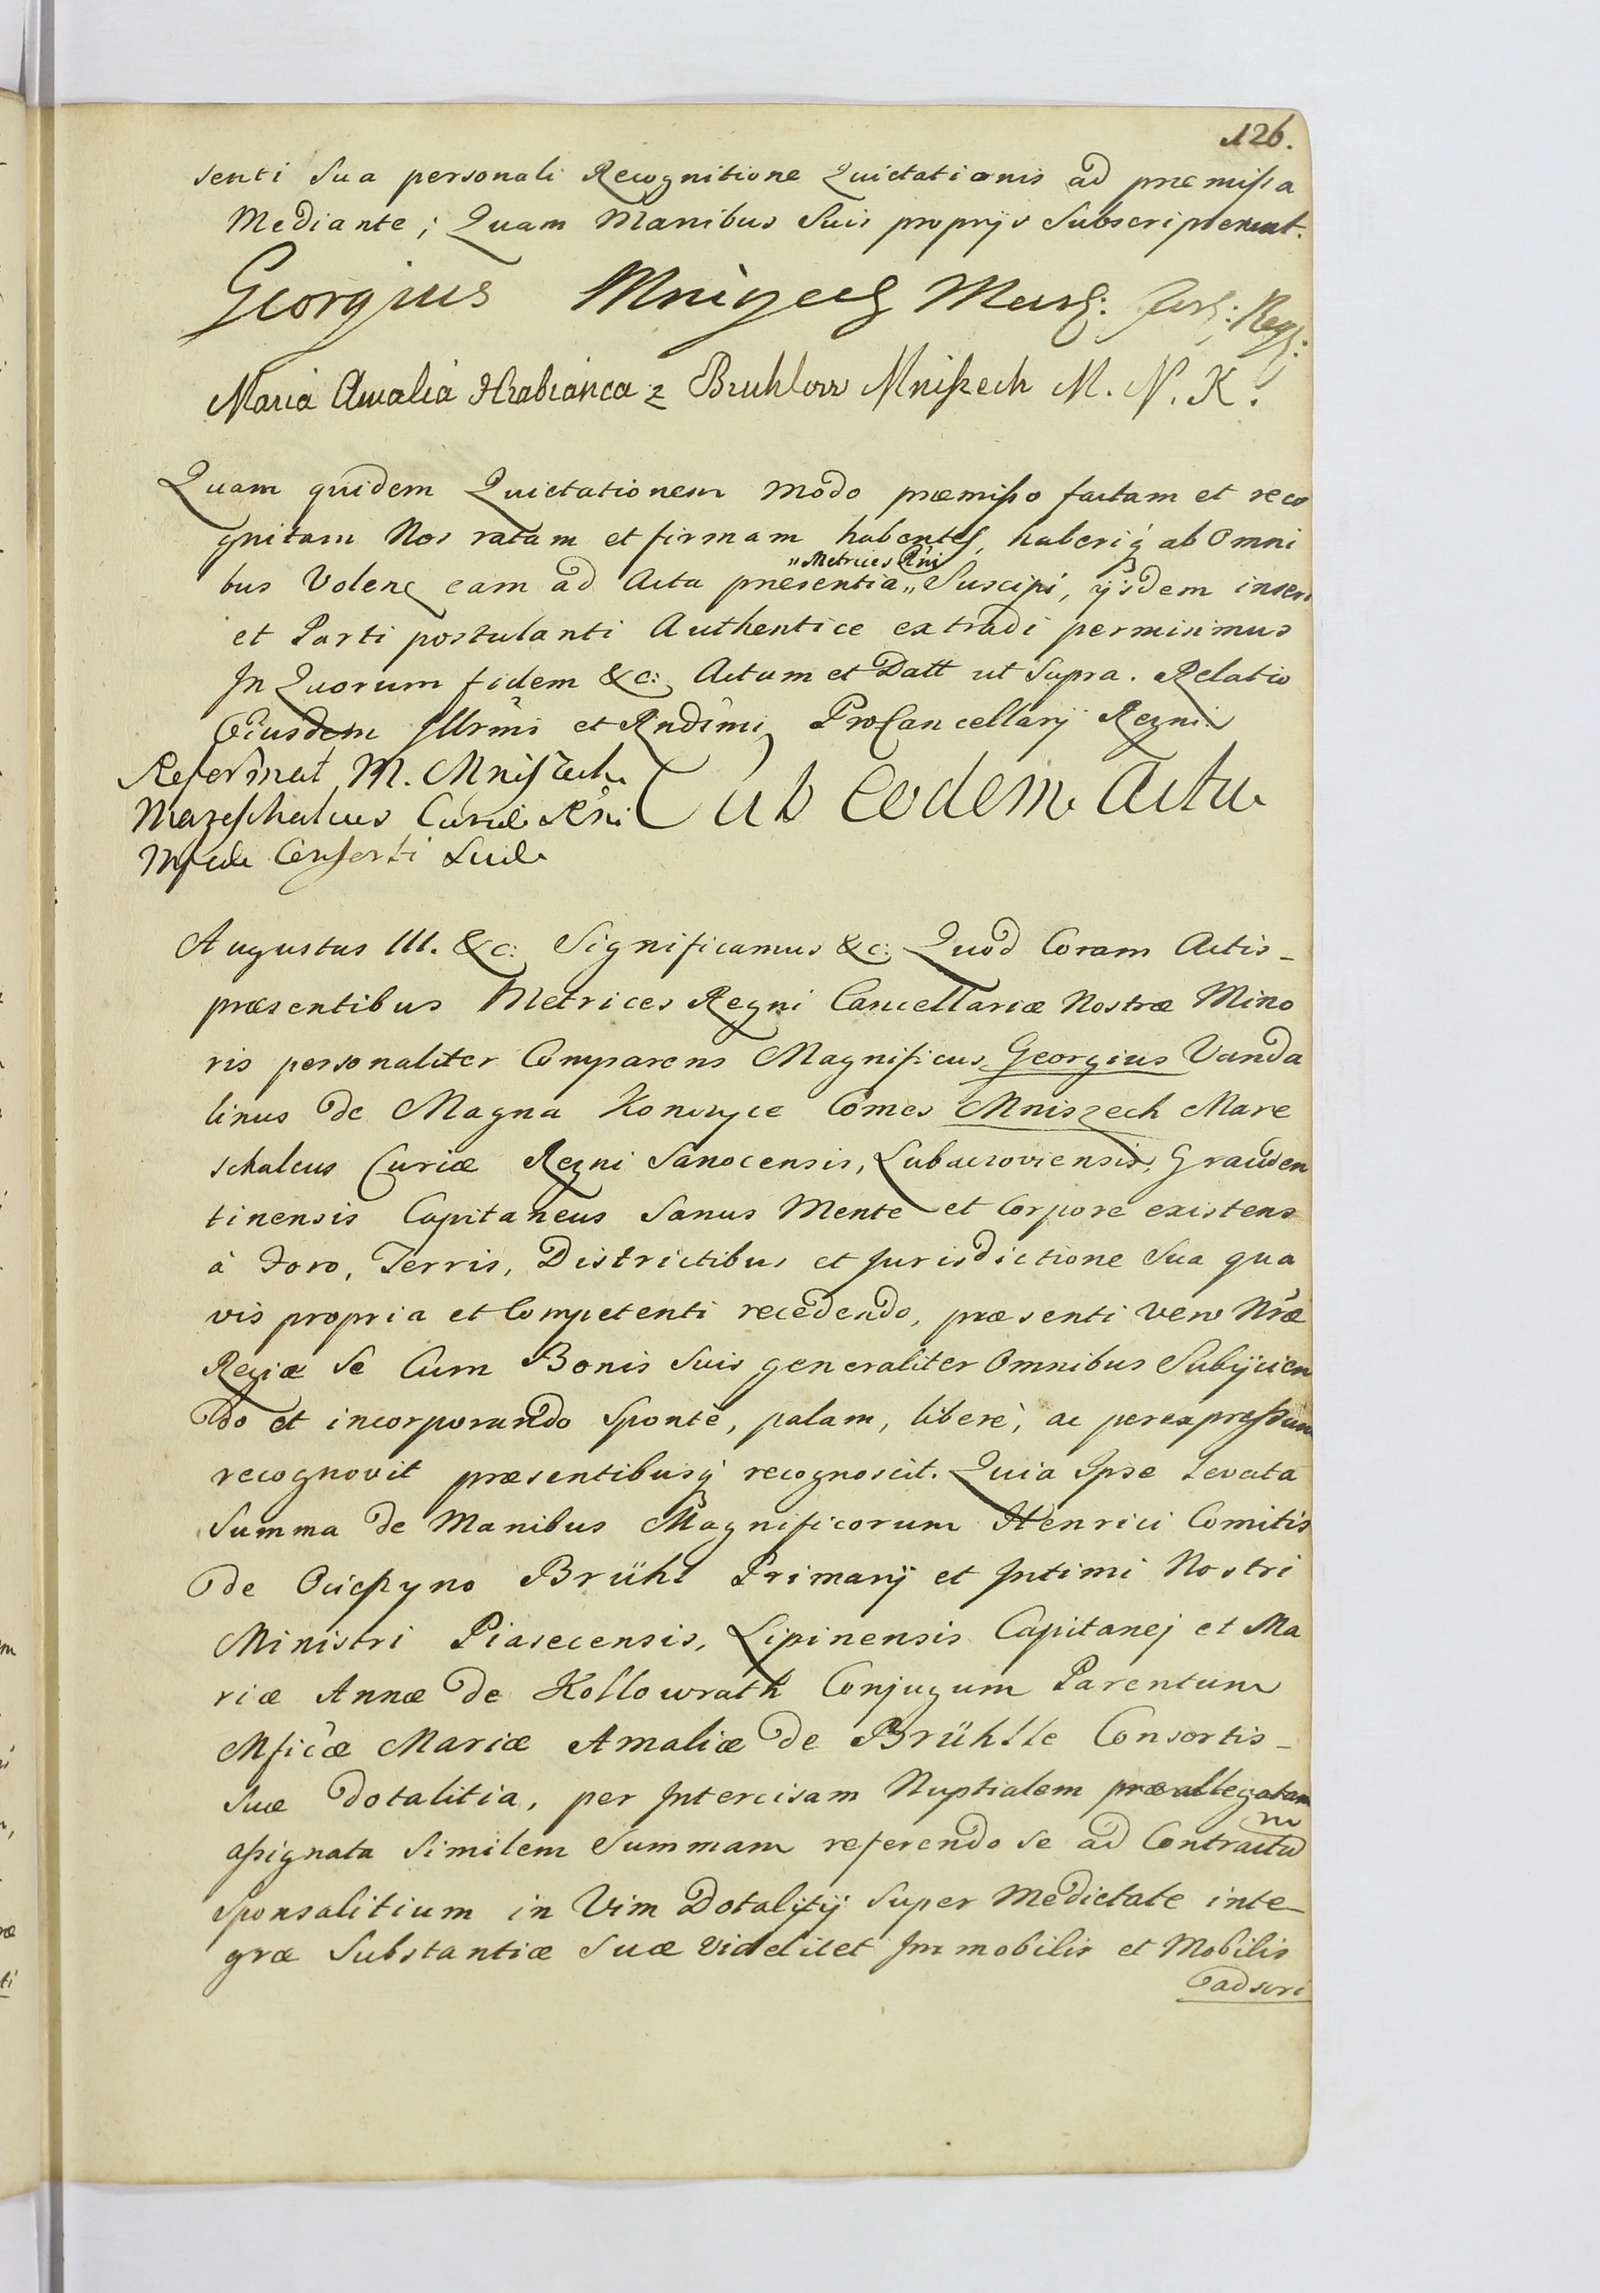 126.
senti Sua personali Recognitione Quietationis ad præmissa
Mediante; Quam Manibus Suis proprijs Subscripserunt.
Georgius Mniszech
Maria Amalia Hrabianca z Bruhlow Mniszech M. N. K.
Quam quidem Quietationem modo præmisso factam et reco
gnitam Nos ratam et firmam habentes, haberiq́ ab Omni
„Metrices Rñi
bus Volen̄ eam ad Acta præsentia „ Suscipi, ijsdem inseri
et Parti postulanti Authentice extradi permisimus
In Quorum fidem &c: Actum et Datt ut Supra. Relatio
Eiusdem Illrmi et Rndimi ProCancellarij Regni
Sub eodem Actu
M. Mniszech
Mareschalcus Curiæ Rñi
Augustus III. &c: Significamus &c: Quod Coram Actis
præsentibus Metrices Regni Cancellariæ Nostræ Mino
ris personaliter Comparens Magnificus Georgius Vanda
linus De Magna Konczyce Comes Mniszech Mare
schalcus Curiæ Regni Sanocensis, Lubaczoviensis, Grauden
tinensis Capitaneus Sanus Mente et Corpore existens
à Foro, Terris, Districtibus et Jurisdictione Sua qua
vis propria et Competenti recedendo, præsenti vero Nræ
Regiæ Se Cum Bonis Suis generaliter Omnibus Subijcien
do et incorporando Sponte, palam, liberè, ac per expressum
recognovit præsentibusq́ recognoscit. Quia Ipse Levata
Summa de Manibus Magnificorum Henrici Comitis
de Ocieszyno Brühl Primarij et Intimi Nostri
Ministri Piasecensis, Lipinensis Capitanej et Ma
riæ Annæ De Kollowrath Conjugum Parentum
Mficæ Mariæ Amaliæ De Brühlle Consortis
Suæ Dotalitia, per Intercisam Nuptialem præallegatam
assignata Similem Summam referendo Se ad Contractū
Sponsalitium in Vim Dotalitij Super Medietate inte
græ Substantiæ Suæ videlicet Immobilis et Mobilis
adscri